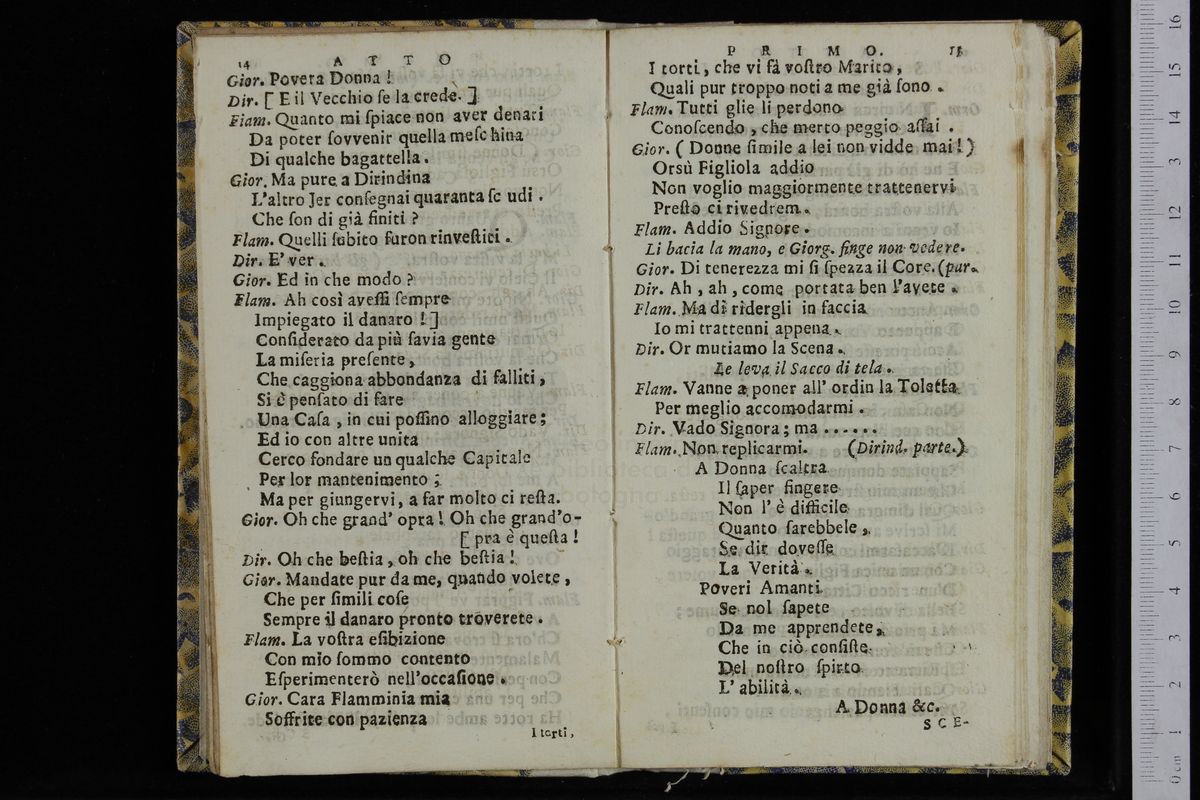 14 A T T O
Gior. Povera Donna !
Dir. [ E il Vecchio ſe la crede. ]
Flam. Quanto mi ſpiace non aver denari
Da poter ſovvenir quella meſchina
Di qualche bagattella .
Gior. Ma pure a Dirindina
L'altro Jer conſegnai quaranta ſcudi .
Che ſon di già finiti ?
Flam. Quelli ſubito furon rinveſtiti .
Dir. E' ver .
Gior. Ed in che modo ?
Flam. Ah così aveſſi ſempre
Impiegato il danaro ! ]
Conſiderato da più ſavia gente
La miſeria preſente ,
Che caggiona abbondanza di falliti ,
Si è penſato di fare
Una Caſa , in cui poſſino alloggiare ;
Ed io con altre unita
Cerco fondare un qualche Capitale
Per lor mantenimento ;
Ma per giungervi , a far molto ci reſta.
Gior. Oh che grand' opra ! Oh che grand'o-
[ pra è queſta !
Dir. Oh che beſtia , oh che beſtia !
Gior. Mandate pur da me, quando volete ,
Che per ſimili coſe
Sempre il danaro pronto troverete .
Flam. La voſtra eſibizione
Con mio ſommo contento
Eſperimenterò nell'occaſione .
Gior. Cara Flamminia mia
Soffrite con pazienza
I torti ,
P R I M O. 15
I torti , che vi fà voſtro Marito ,
Quali pur troppo noti a me già ſono .
Flam. Tutti glie li perdono
Conoſcendo , che merto peggio aſſai .
Gior. ( Donne ſimile a lei non vidde mai ! )
Orsù Figliola addio
Non voglio maggiormente trattenervi
Preſto ci rivedrem .
Flam. Addio Signore .
Li bacia la mano, e Giorg. finge non vedere.
Gior. Di tenerezza mi ſi ſpezza il Core. (par.
Dir. Ah , ah , come portata ben l'avete .
Flam. Ma dì ridergli in faccia
Io mi trattenni appena .
Dir. Or mutiamo la Scena .
Le leva il Sacco di tela .
Flam. Vanne a poner all' ordin la Toletta
Per meglio accomodarmi .
Dir. Vado Signora ; ma . . . . . .
Flam. Non replicarmi. (Dirind. parte.)
A Donna ſcaltra
Il ſaper fingere
Non l' è difficile
Quanto ſarebbele ,
Se dir doveſſe
La Verità .
Poveri Amanti
Se nol ſapete
Da me apprendete ,
Che in ciò conſiſte
Del noſtro ſpirto
L' abilità .
A Donna &c.
S C E-